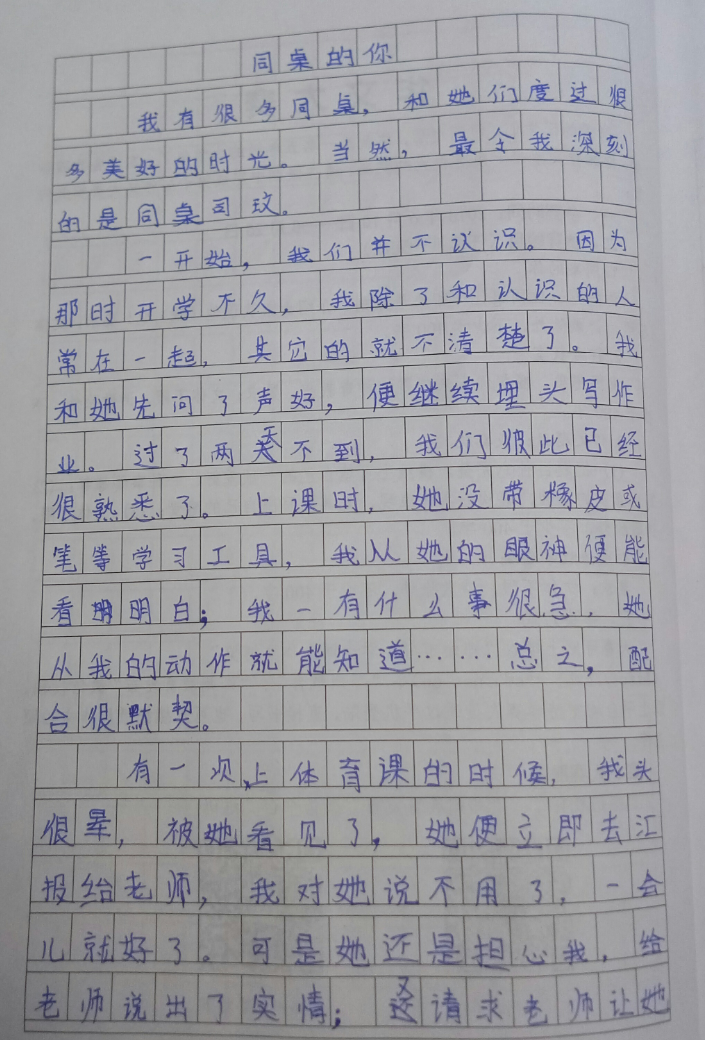 同桌的你
我有很多同桌，和她们度过很
多美好的时光。当然，最令我深刻
的是同桌司玟。
一开始，我们并不议识。因为
那时开学不久，我除了和认识的人
常在一起，其它的就不清楚了。我
和她先问了声好，便继续埋头写作
业。过了两天不到，我们彼此已经
很熟悉了。上课时，她没带橡皮或
笔等学习工具，我从她的眼神便能
看明白；我一有什么事很急，她
从我的动作就能知道……总之，配
合很默契。
有一次，上体育课的时候，我头
很晕，被她看见了，她便立即去汇
报给老师，我对她说不用了，一会
儿就好了。可是她还是担心我，给
老师说出了实情；又请求老师让她